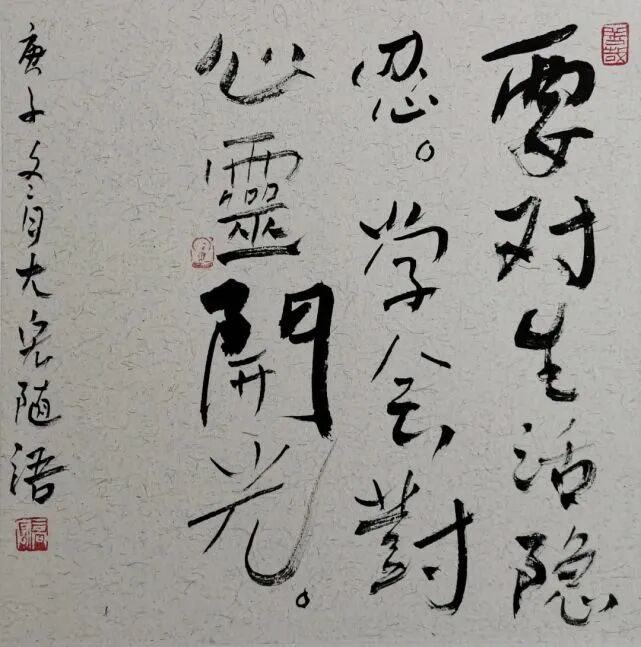 善哉
要对生活隐
忍。学会對
心靈開光。
庚子冬月大随语